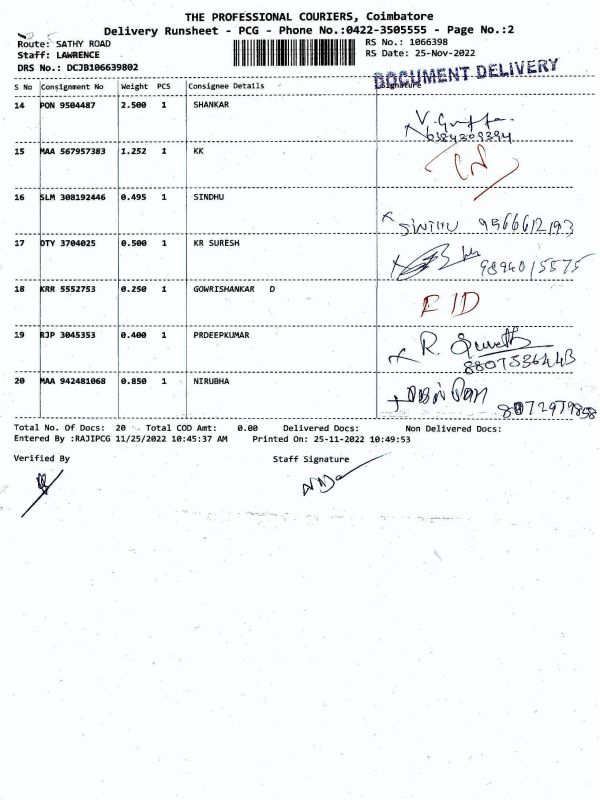 THE PROFESSIONAL COURIERS, Coimbatore
Delivery Runsheet - PCG - Phone No.:0422-3505555 - Page No.:2
Route: SATHY ROAD
RS No.: 1066398
Staff: LAWRENCE
RS Date: 25-Nov-2022
DRS No.: DCJB106639802
DOCUMENT DELIVERY
S No Consignment No Weight PCS Consignee Details Signature
14 PON 9504487 2.500 1 SHANKAR
15 MAA 567957383 1.252 1 KK
16 SLM 308192446 0.495 1 SINDHU
SINTHU 9566612193
17 DTY 3704025 0.500 1 KR SURESH
9894015575
18 KRR 5552753 0.250 1 GOWRISHANKAR D
19 RJP 3045353 0.400 1 PRDEEPKUMAR
8807536443
20 MAA 942481068 0.850 1 NIRUBHA
8072979858
Total No. Of Docs: 20 Total COD Amt: 0.00 Delivered Docs: Non Delivered Docs:
Entered By :RAJIPCG 11/25/2022 10:45:37 AM Printed On: 25-11-2022 10:49:53
Verified By Staff Signature